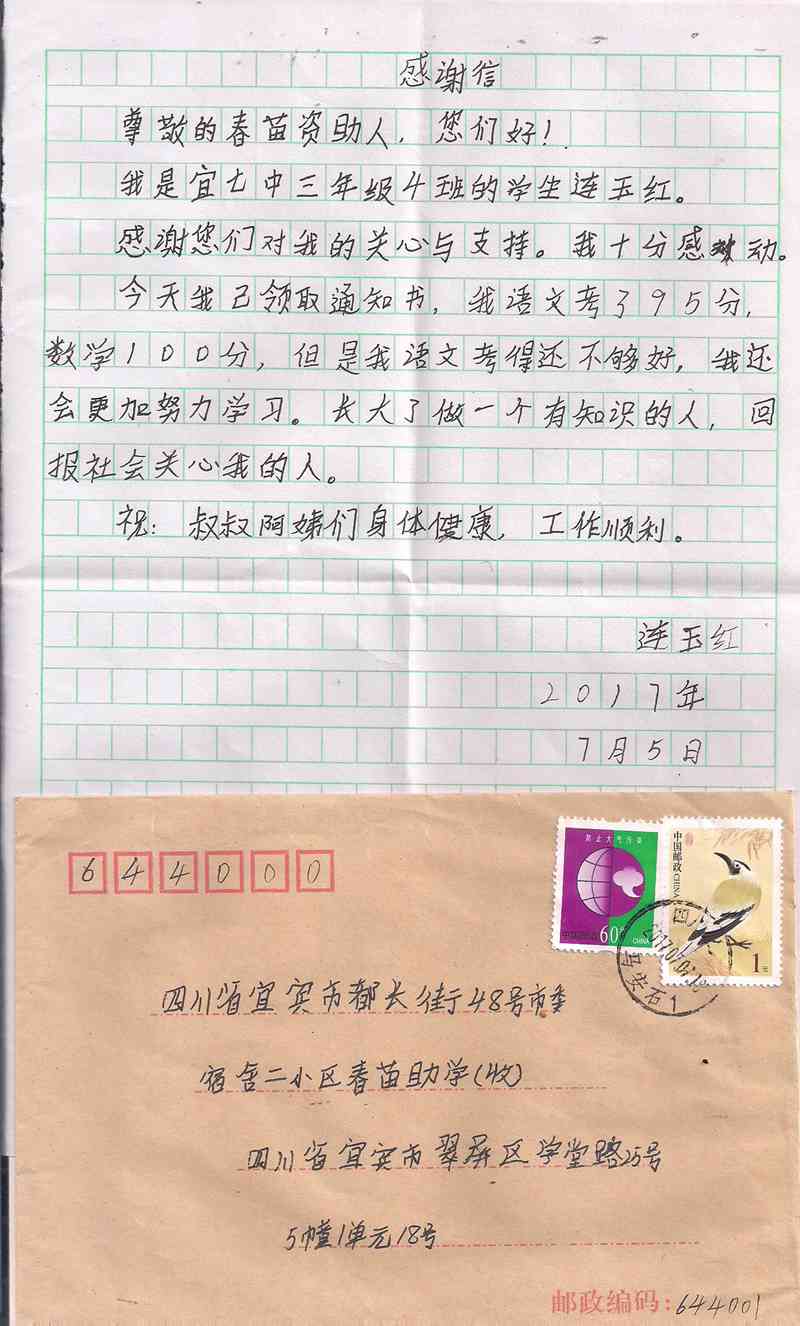 感谢信
尊敬的春苗资助人，您们好！
我是宜七中三年级4班的学生连玉红。
感谢您们对我的关心与支持。我十分感动。
今天我己领取通知书，我语文考了95分，
数学100分，但是我语文考得还不够好，我还
会更加努力学习。长大了做一个有知识的人，回
报社会关心我的人。
祝：叔叔阿姨们身体健康，工作顺利。
连玉红
2017年
7月5日
644000
防止大气污染
中国邮政 60分
CHINA
中国邮政 CHINA
1元
四川省宜宾市都长街48号市委
宿舍二小区春苗助学(收)
四川省宜宾市翠屏区学堂路25号
5幢1单元18号
邮政编码：644001